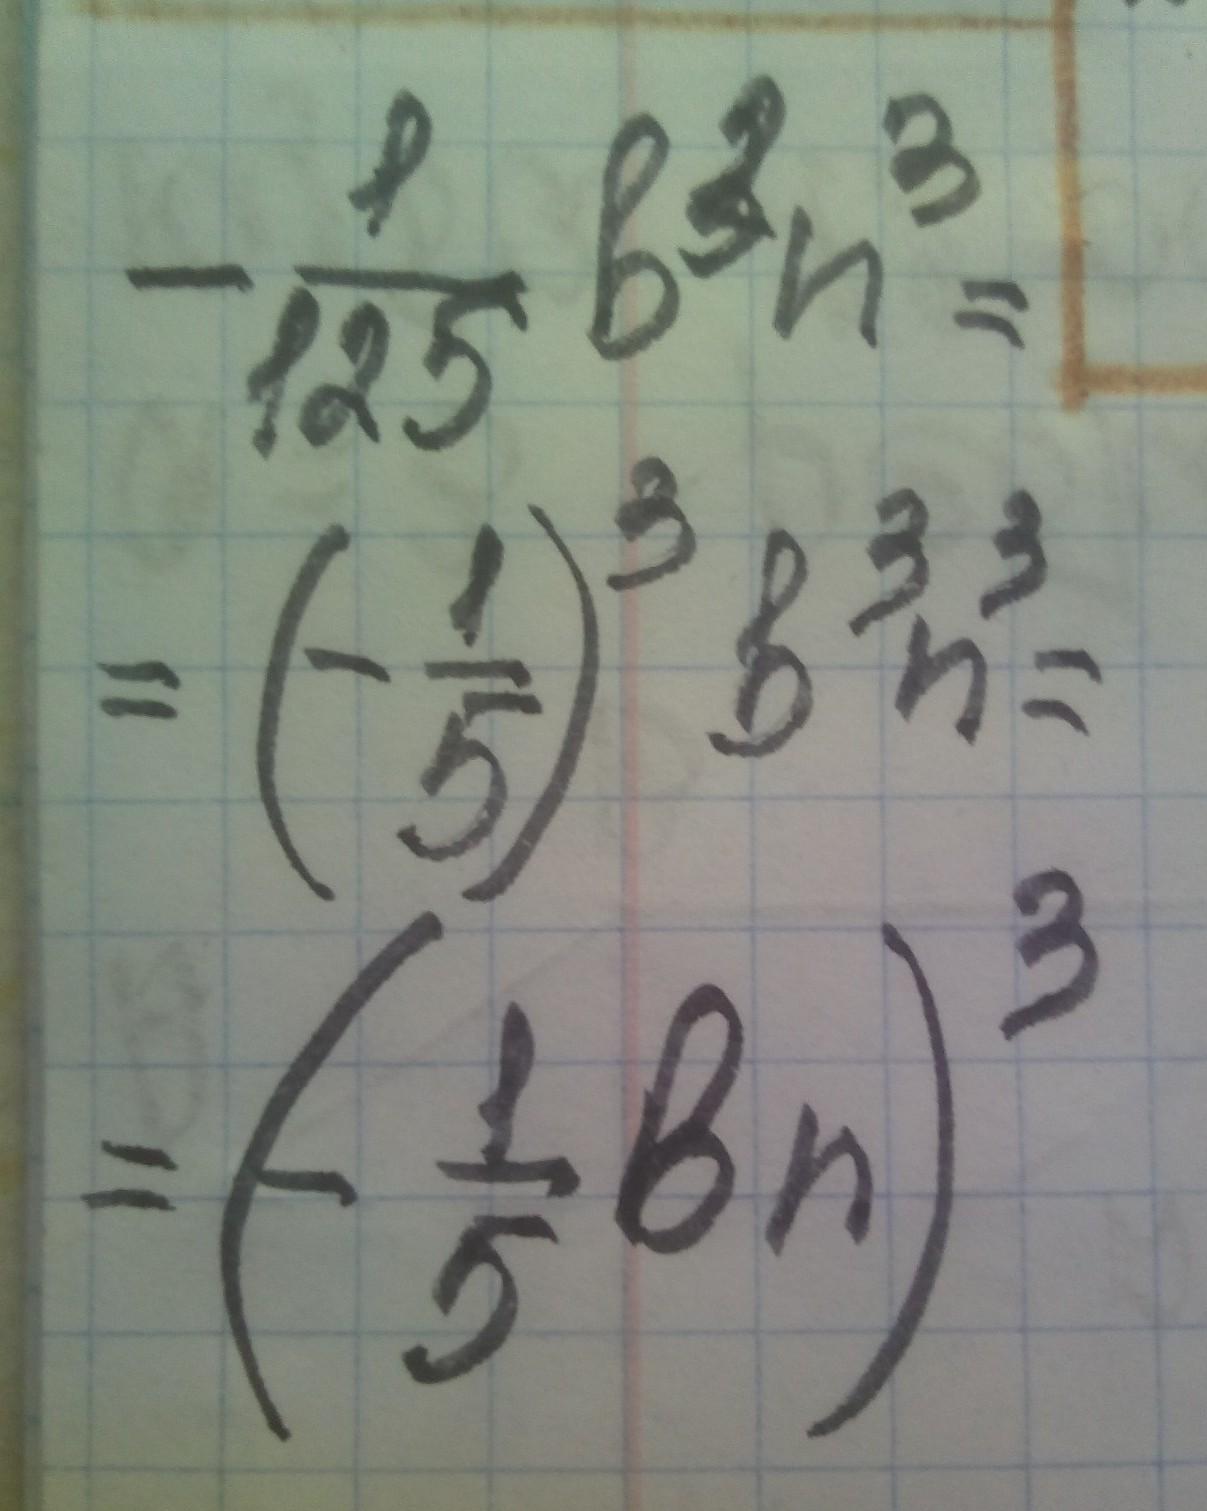 -1/125 b³n³ =
= (-1/5)³ b³n³ =
= (-1/5 bn)³